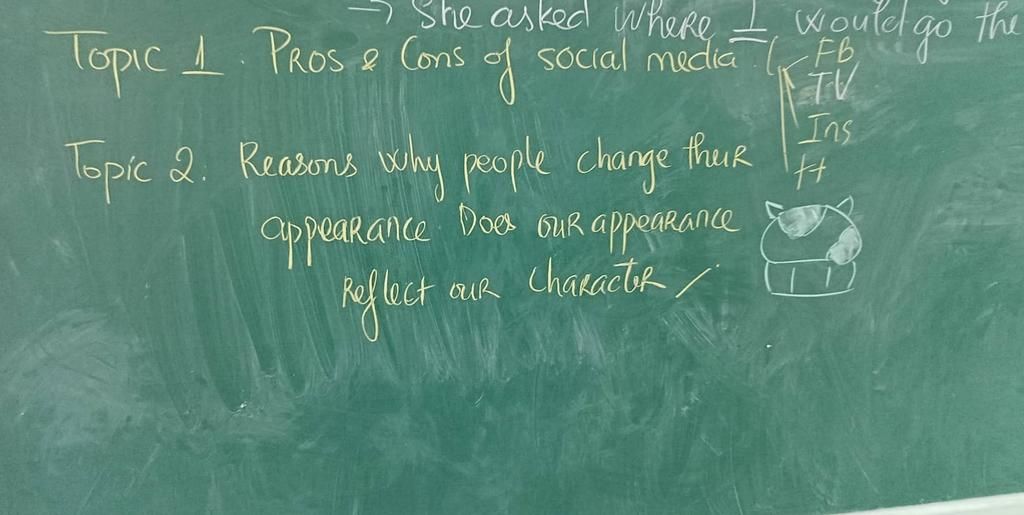 → She asked where I would go the
Topic 1. Pros & Cons of social media (
FB
TV
Ins
tt
Topic 2. Reasons why people change their
appearance. Does our appearance
reflect our character /